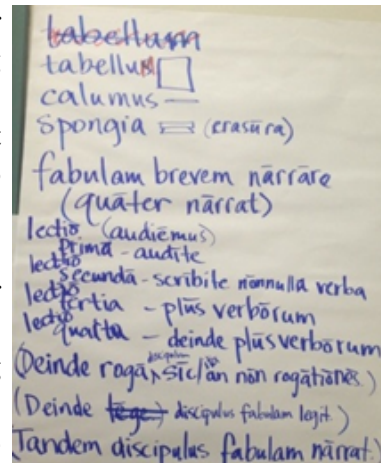 tabellum
tabellum
calumus
spongia (erasūra)
fabulam brevem nārrāre
(quāter nārrat)
lectiō (audiēmus)
prima - audīte
lectiō
secundā - scrībile nōnnulla verba
lectiō
tertia - plūs verbōrum
lectiō
quarta - deinde plūs verbōrum
(Deinde rogā discipulum sīc/an nōn rogātiōnēs.)
(Deinde tege) discipulus fabulam legit.)
(Tandem discipulus fabulam nārrat.)